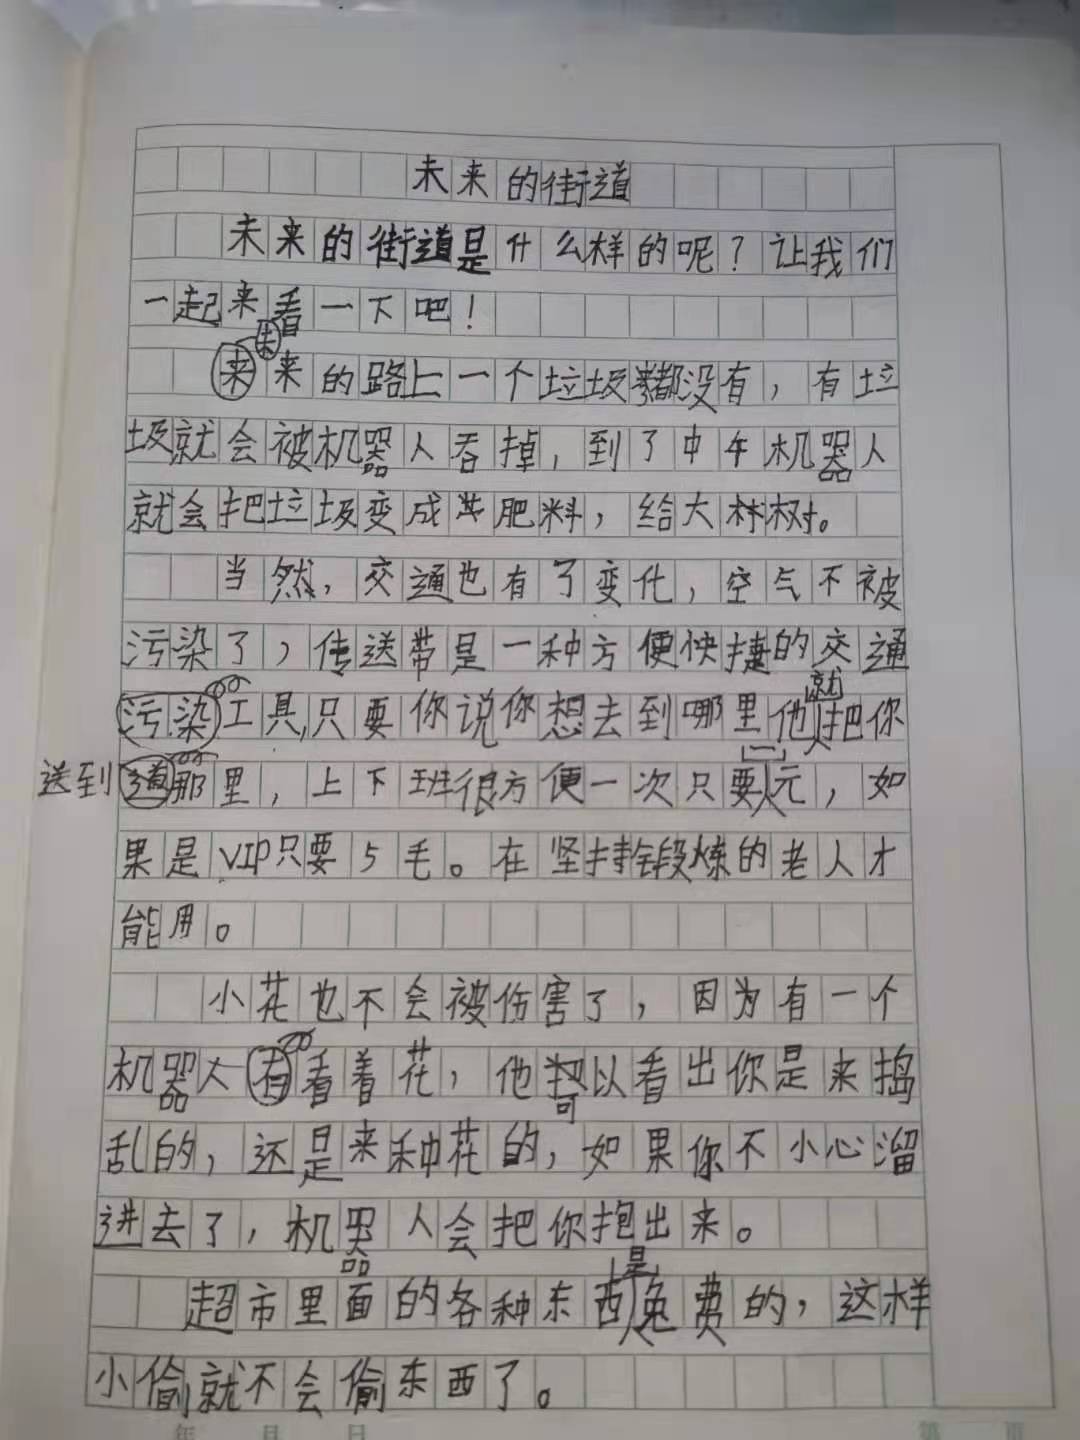 未来的街道
未来的街道是什么样的呢？让我们
一起来看一下吧！
未来的路上一个垃圾都没有，有垃
圾就会被机器人吞掉，到了中午机器人
就会把垃圾变成肥料，给大树。
当然，交通也有了变化，空气不被
污染了，传送带是一种方便快捷的交通
工具，只要你说你想去到哪里他就把你
送到那里，上下班很方便一次只要一元，如
果是VIP只要5毛。在坚持锻炼的老人才
能用。
小花也不会被伤害了，因为有一个
机器人看着花，他可以看出你是来捣
乱的，还是来种花的，如果你不小心溜
进去了，机器人会把你抱出来。
超市里面的各种东西是免费的，这样
小偷就不会偷东西了。
年 月 日 第 页